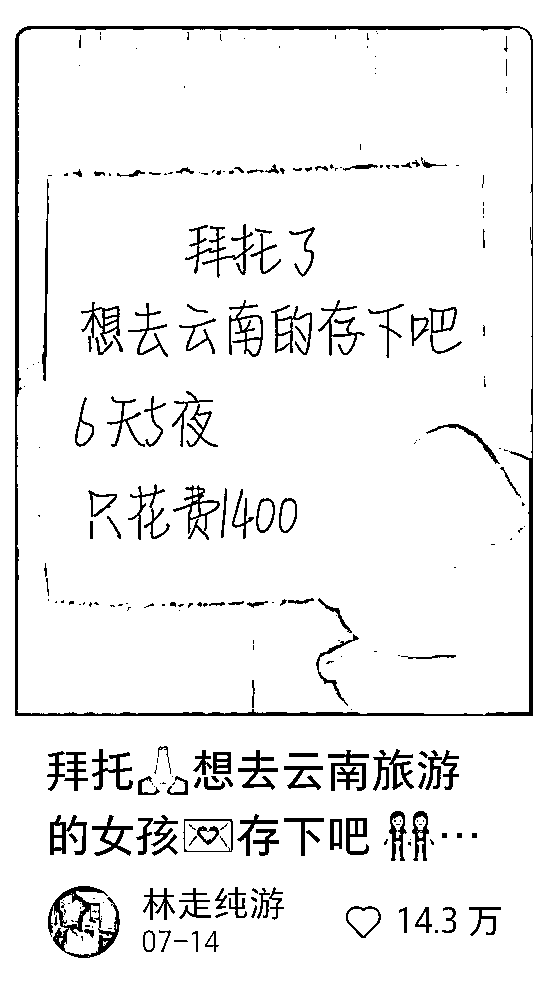 拜托了
想去云南的存下吧
6天5夜
只花费1400
拜托🙏想去云南旅游
的女孩💌存下吧 👭…
林走纯游
07-14
14.3 万